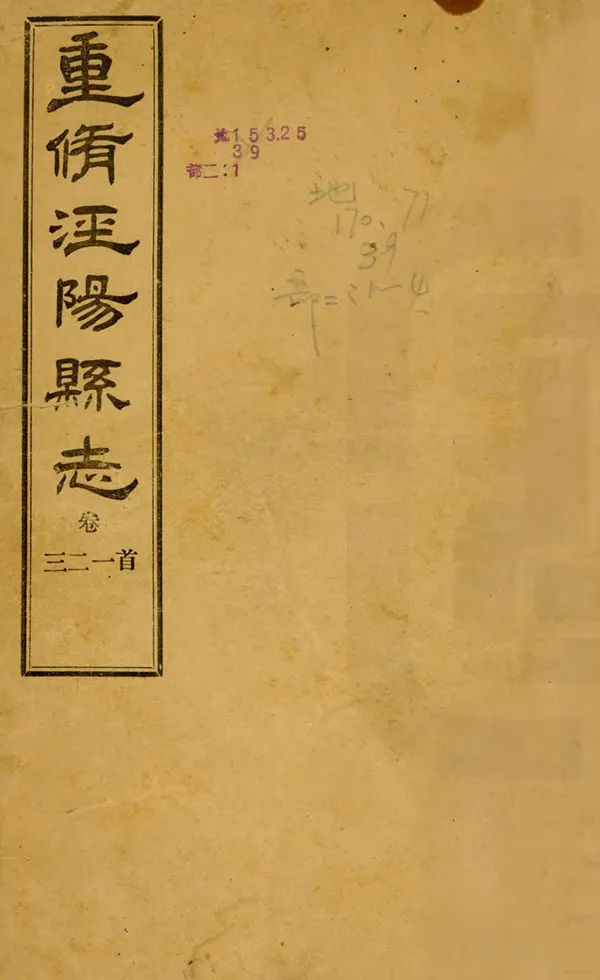 重脩涇陽縣志
卷
首一二三
地153.25
39
部二:1
地
170.71
39
部二:1~4